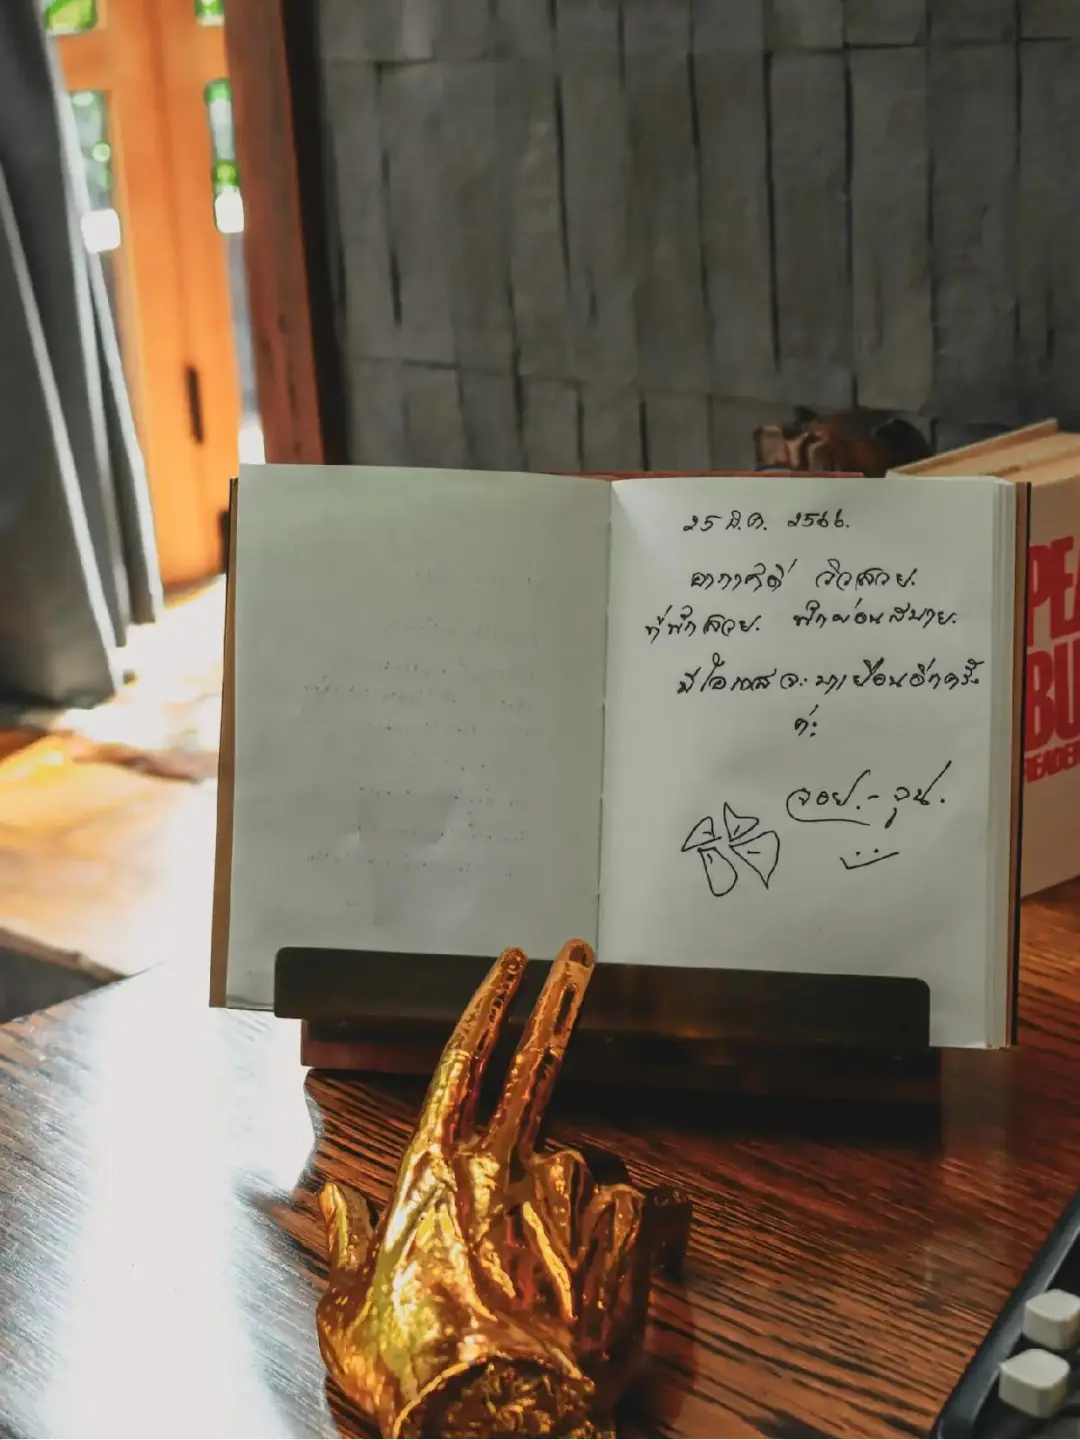 25 มี.ค. 2566.
อากาศดี วิวสวย.
ที่พักสวย. พักผ่อนสบาย.
มีโอกาสจะมาเยือนอีกครั้ง
ค่ะ
จอย.-จุ๋น.
PEA
BU
READER